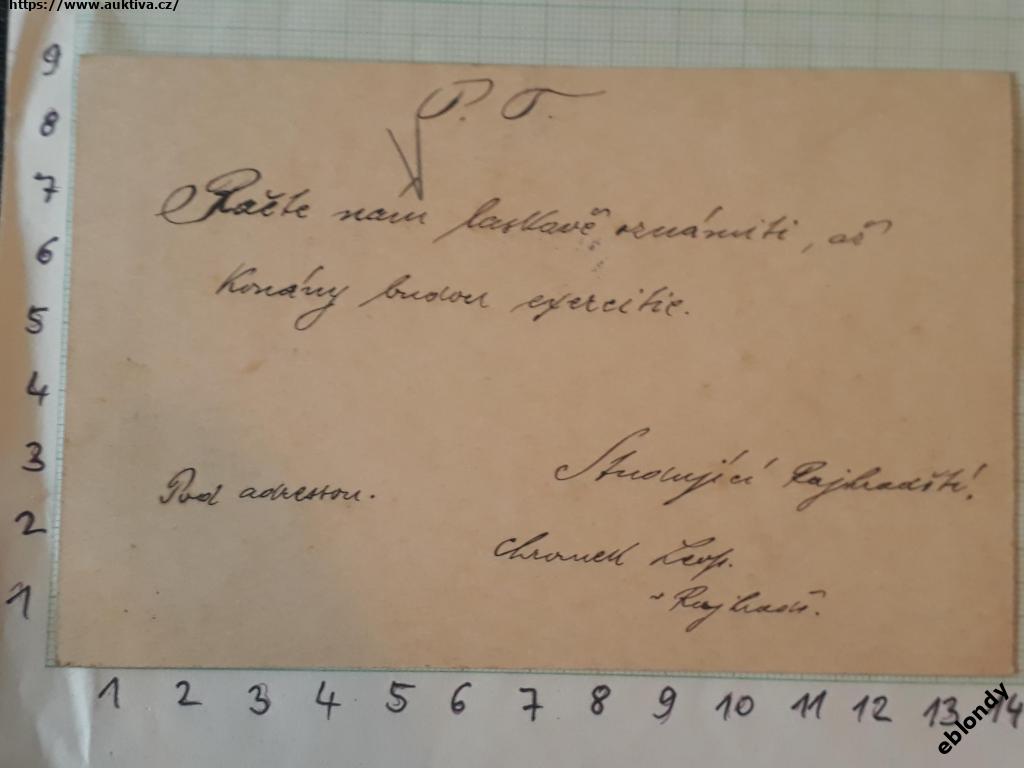 https://www.auktiva.cz/
P. T.
Račte nám laskavě oznámiti, až
Konány budou exercitie.
Studující Rajhradští.
Pod adressou.
Leop.
v Rajhradě.
9
8
7
6
5
4
3
2
1
1 2 3 4 5 6 7 8 9 10 11 12 13 14
eblondy